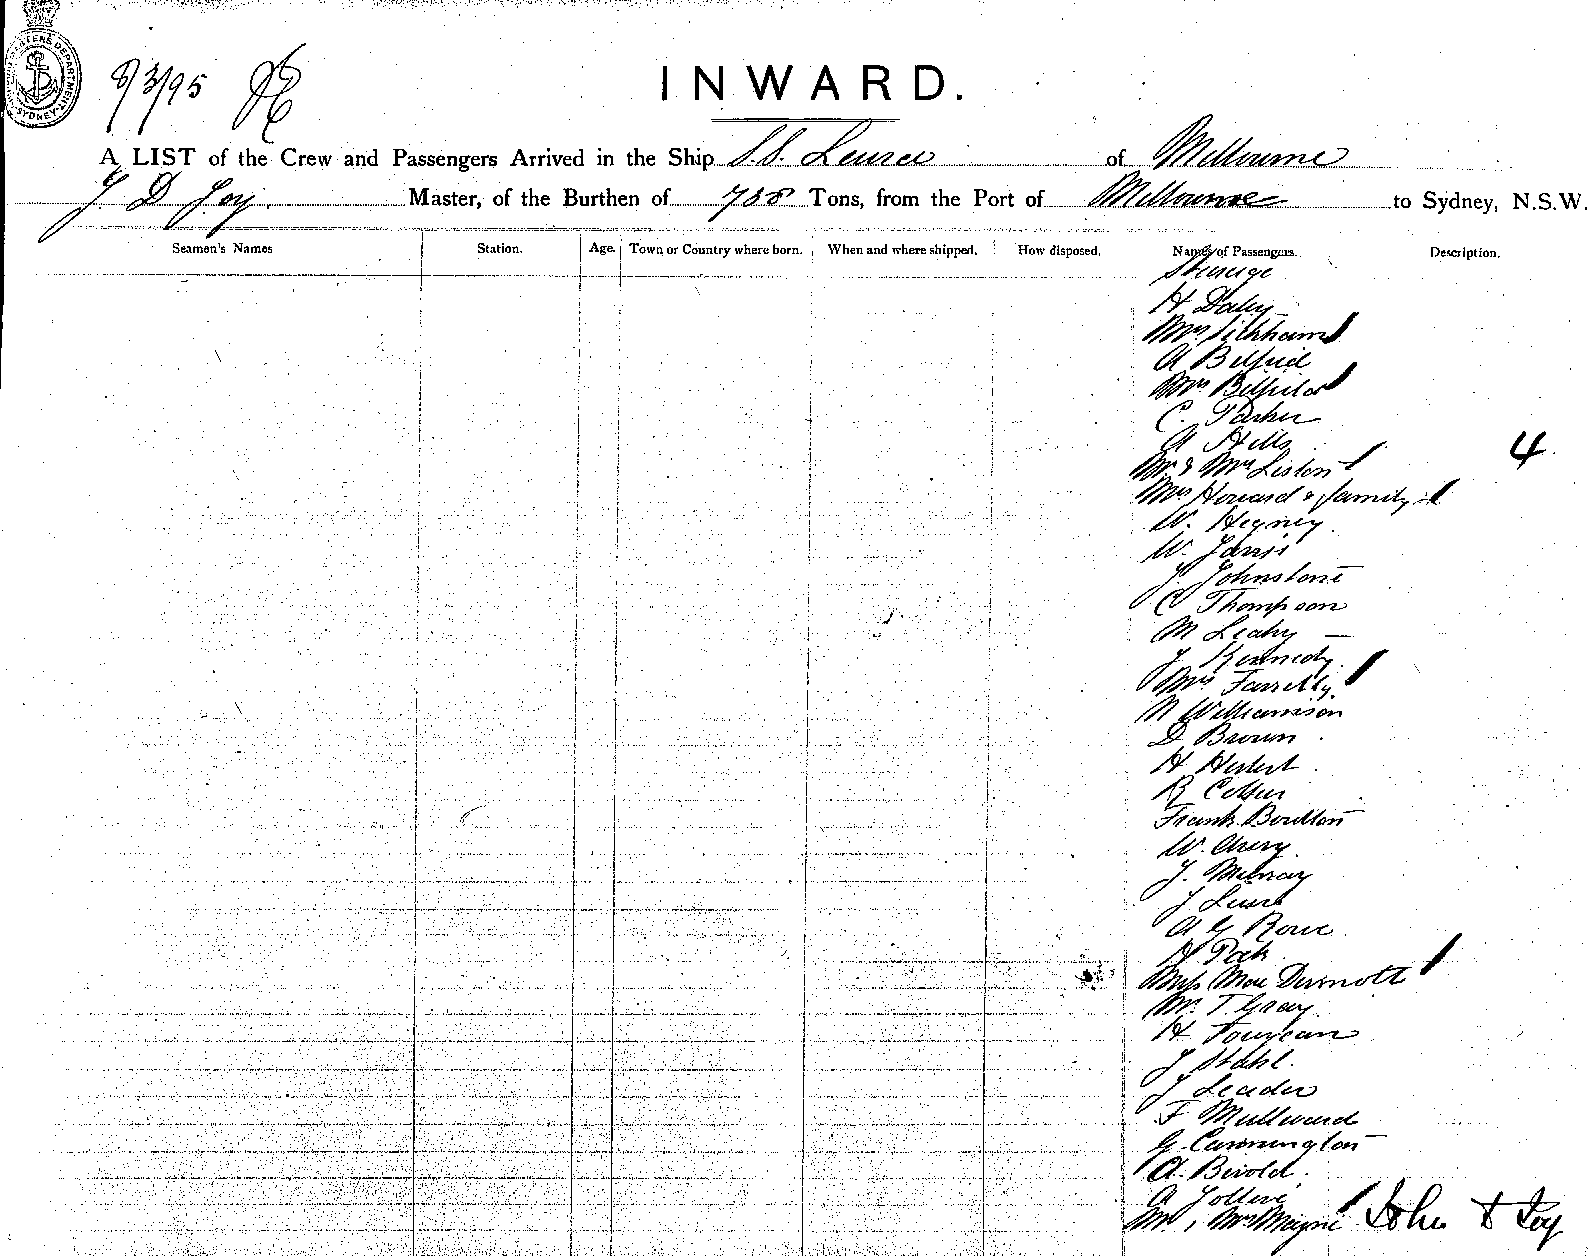 SYDNEY
8/3/95
INWARD.
A LIST of the Crew and Passengers Arrived in the Ship S.S. of Melbourne
J. D. Joy. Master, of the Burthen of 788 Tons, from the Port of Melbourne to Sydney, N.S.W.
Seamen's Names Station. Age. Town or Country where born. When and where shipped. How disposed. Names of Passengers. Description.
Steerage
H Daley
Mrs
A Belfield
Mrs Belfield
C. Parker
A Hills
4
Mr & Mrs Liston
Mrs Howard & family
W. Hegney
W. Jarvis
J. Johnstone
C Thompson
M Leahy
J Kennedy
Mrs Farrelly
N Williamson
D Brown
H Herbert
R
Frank Boulton
W.
J.
J
A G Rowe
H
Miss Mac Dermott
Mr. T. Gray
H
J Stahl.
J Leader
F Mullward
G Cannington
A.
A Jollive
Mr & Mrs Mayne
John D Joy